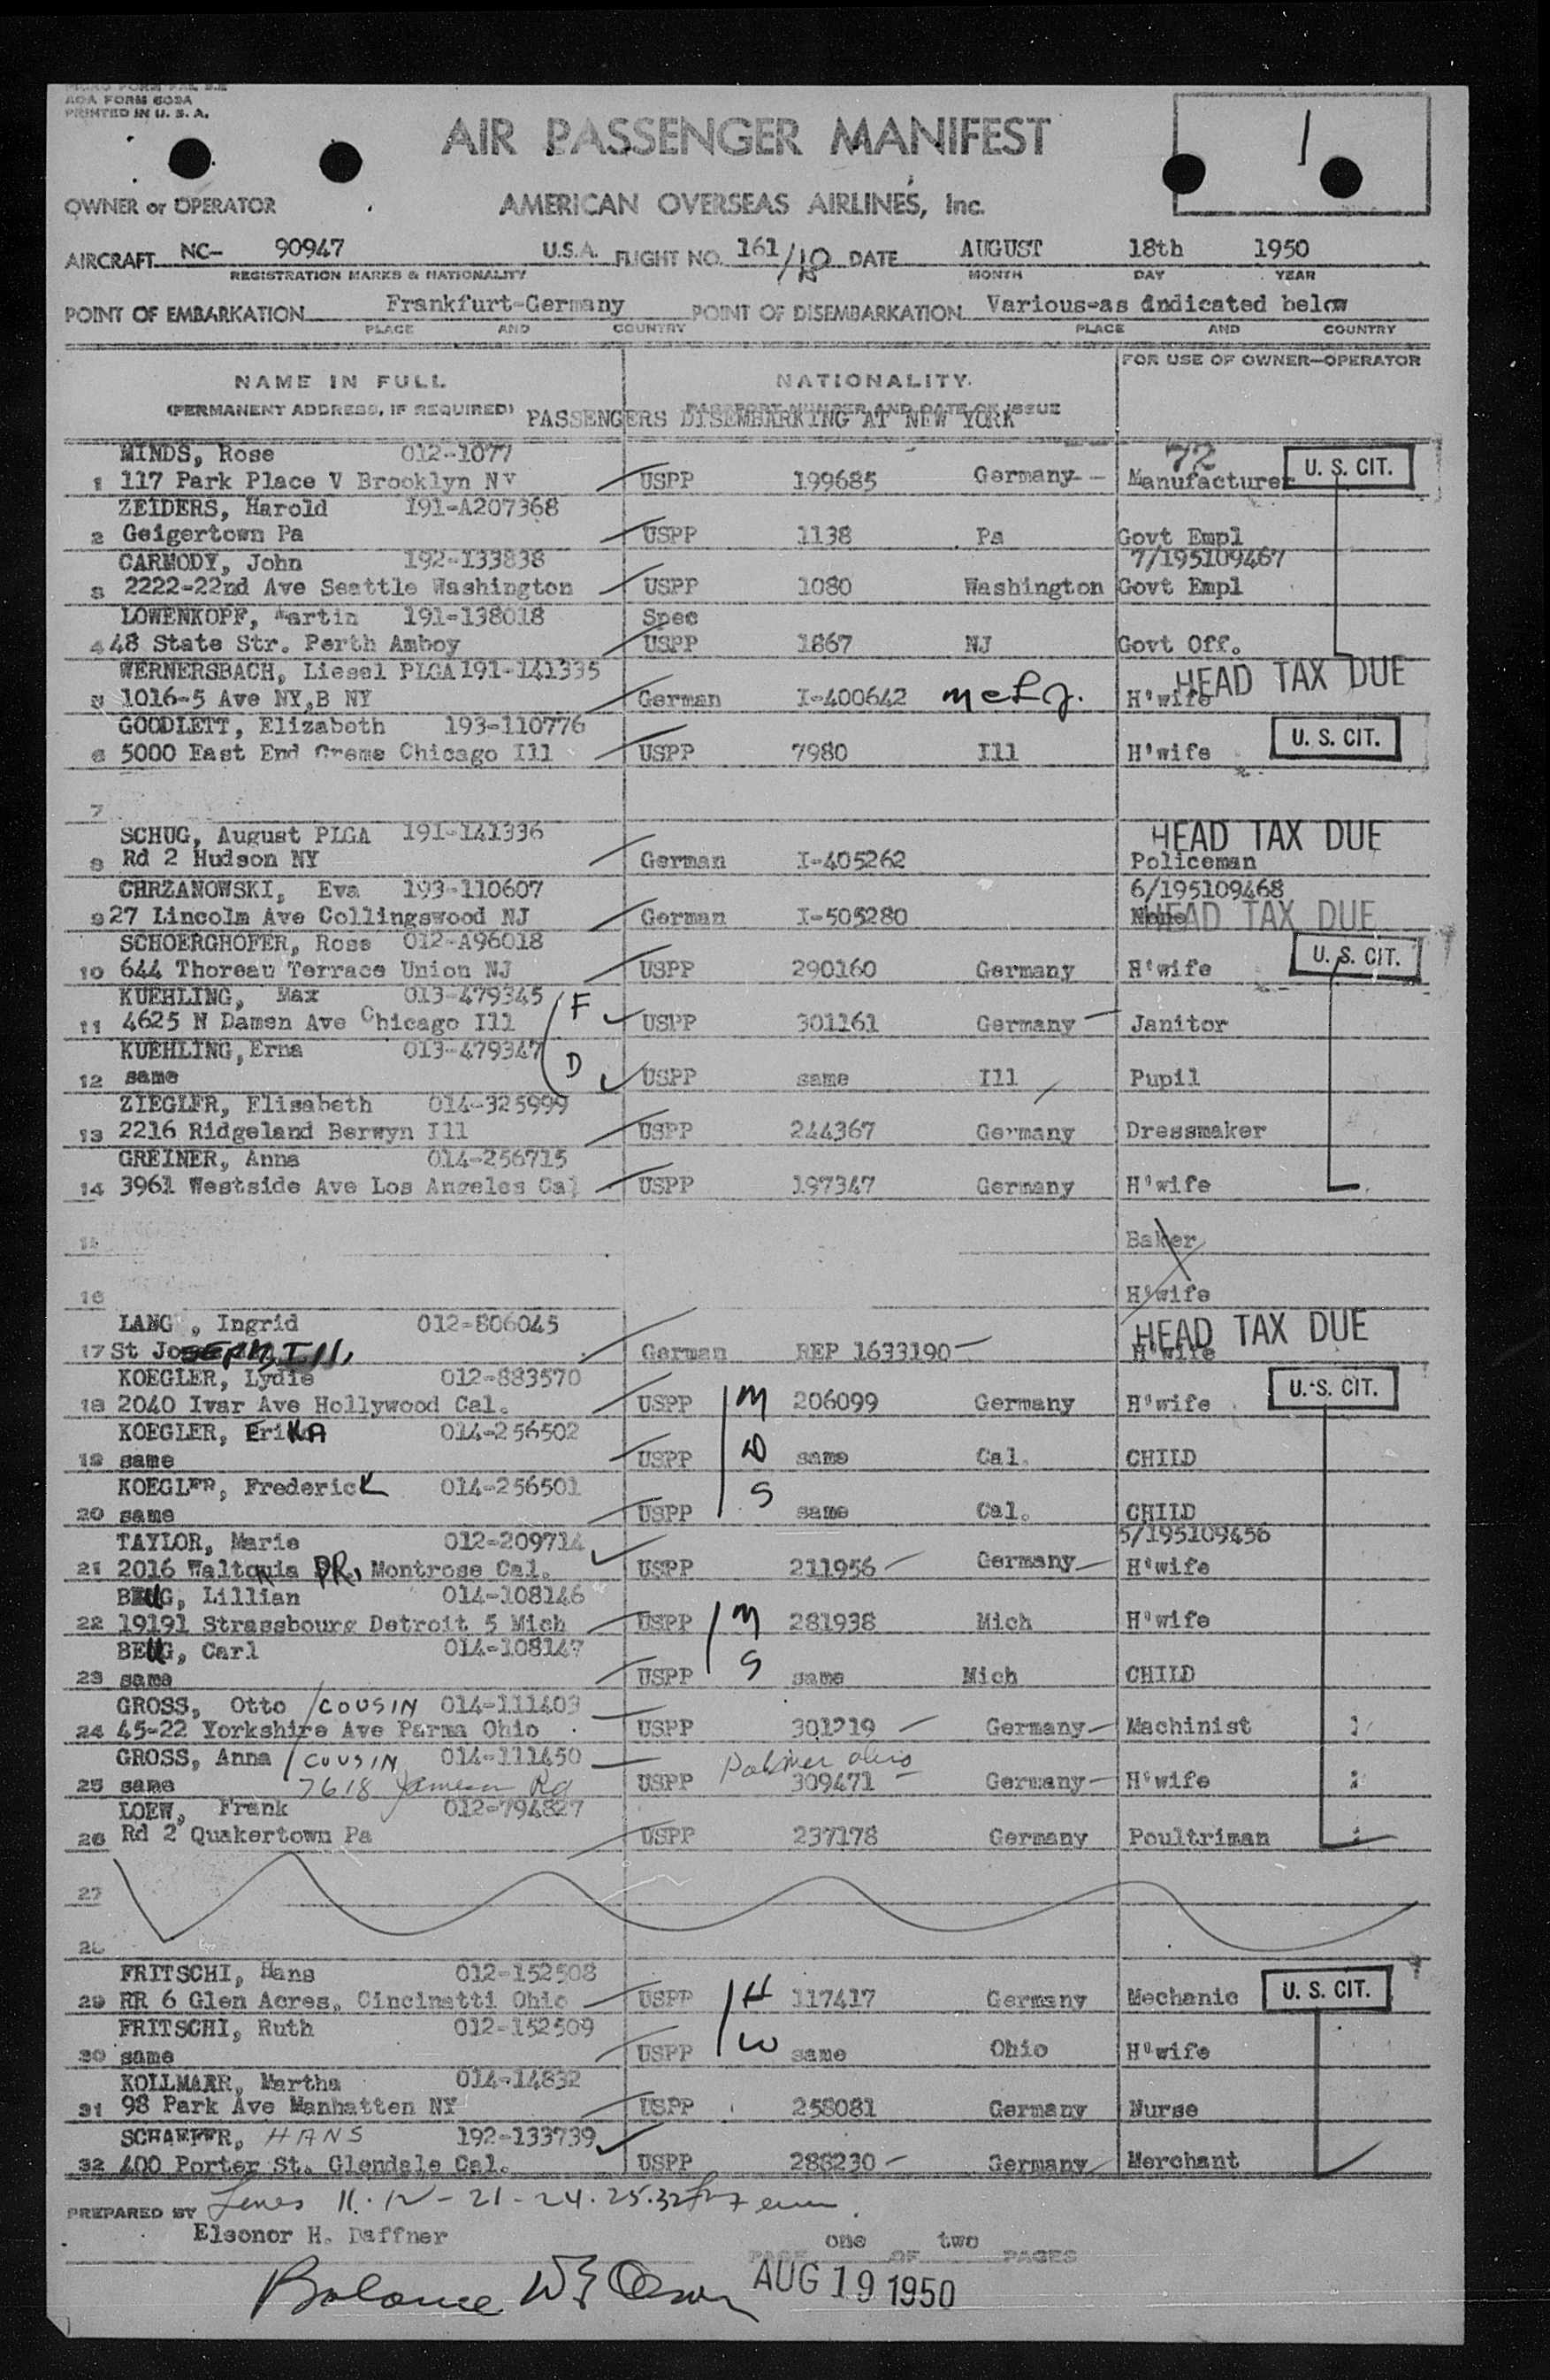 AOA FORM 603A
PRINTED IN U. S. A.
AIR PASSENGER MANIFEST
1
OWNER or OPERATOR
AMERICAN OVERSEAS AIRLINES, Inc.
AIRCRAFT NC- 90947 U.S.A. FLIGHT NO. 161/18 DATE AUGUST 18th 1950
REGISTRATION MARKS & NATIONALITY MONTH DAY YEAR
POINT OF EMBARKATION Frankfurt-Germany POINT OF DISEMBARKATION Various-as indicated below
PLACE AND COUNTRY PLACE AND COUNTRY
FOR USE OF OWNER-OPERATOR
NAME IN FULL NATIONALITY
(PERMANENT ADDRESS, IF REQUIRED) PASSPORT NUMBER AND DATE OF ISSUE
PASSENGERS DISEMBARKING AT NEW YORK
MINDS, Rose 012-1077 72 U. S. CIT.
1 117 Park Place V Brooklyn NY USPP 199685 Germany- Manufacturer
ZEIDERS, Harold 191-A207368
2 Geigertown Pa USPP 1138 Pa Govt Empl
CARMODY, John 192-133838 7/195109467
3 2222-22nd Ave Seattle Washington USPP 1080 Washington Govt Empl
LOWENKOPF, Martin 191-138018 Spec
4 48 State Str. Perth Amboy USPP 1867 NJ Govt Off.
WERNERSBACH, Liesel PLGA 191-141335 HEAD TAX DUE
5 1016-5 Ave NY,B NY German I-400642 H'wife
GOODLETT, Elizabeth 193-110776 U. S. CIT.
6 5000 East End Chicago Ill USPP 7980 Ill H'wife
7
SCHUG, August PLGA 191-141336 HEAD TAX DUE
8 Rd 2 Hudson NY German I-405262 Policeman
CHRZANOWSKI, Eva 193-110607 6/195109468
9 27 Lincolm Ave Collingswood NJ German I-505280 None HEAD TAX DUE
SCHOERGHOFER, Rose 012-A96018 U. S. CIT.
10 644 Thoreau Terrace Union NJ USPP 290160 Germany H'wife
KUEHLING, Max 013-479345 F
11 4625 N Damen Ave Chicago Ill USPP 301161 Germany Janitor
KUEHLING, Erna 013-479347 D
12 same USPP same Ill Pupil
ZIEGLER, Elisabeth 014-325999
13 2216 Ridgeland Berwyn Ill USPP 244367 Germany Dressmaker
GREINER, Anna 014-256715
14 3961 Westside Ave Los Angeles Cal USPP 197347 Germany H'wife
15 Baker
16 H'wife
LANG , Ingrid 012-806045 HEAD TAX DUE
17 St JoSEPH, Ill, German REP 1633190- H'wife
KOEGLER, Lydie 012-883570 U. S. CIT.
18 2040 Ivar Ave Hollywood Cal. USPP M 206099 Germany H'wife
KOEGLER, EriKA 014-256502
19 same USPP D same Cal. CHILD
KOEGLER, FredericK 014-256501
20 same USPP S same Cal. CHILD
TAYLOR, Marie 012-209714 5/195109456
21 2016 DR, Montrose Cal. USPP 211956- Germany- H'wife
BEUG, Lillian 014-108146
22 19191 Strassbourg Detroit 5 Mich USPP M 281938 Mich H'wife
BEUG, Carl 014-108147
23 same USPP S same Mich CHILD
GROSS, Otto /COUSIN 014-111403
24 45-22 Yorkshire Ave Parma Ohio USPP 301219 - Germany- Machinist
GROSS, Anna /COUSIN 014-111450
25 same 7618 Jameson Rd USPP 309471 - Germany- H'wife
LOEW, Frank 012-794827
26 Rd 2 Quakertown Pa USPP 237178 Germany Poultriman
27
28
FRITSCHI, Hans 012-152508 U. S. CIT.
29 RR 6 Glen Acres, Cincinatti Ohio USPP H 117417 Germany Mechanic
FRITSCHI, Ruth 012-152509
30 same USPP W same Ohio H'wife
KOLLMAAR, Martha 014-14832
31 98 Park Ave Manhatten NY USPP 258081 Germany Nurse
SCHAEFER, HANS 192-133739
32 400 Porter St. Glendale Cal. USPP 288230- Germany Merchant
PREPARED BY Lines 11-12-21-24-25-32
Eleonor H. Daffner
PAGE one OF two PAGES
Balance
AUG 19 1950